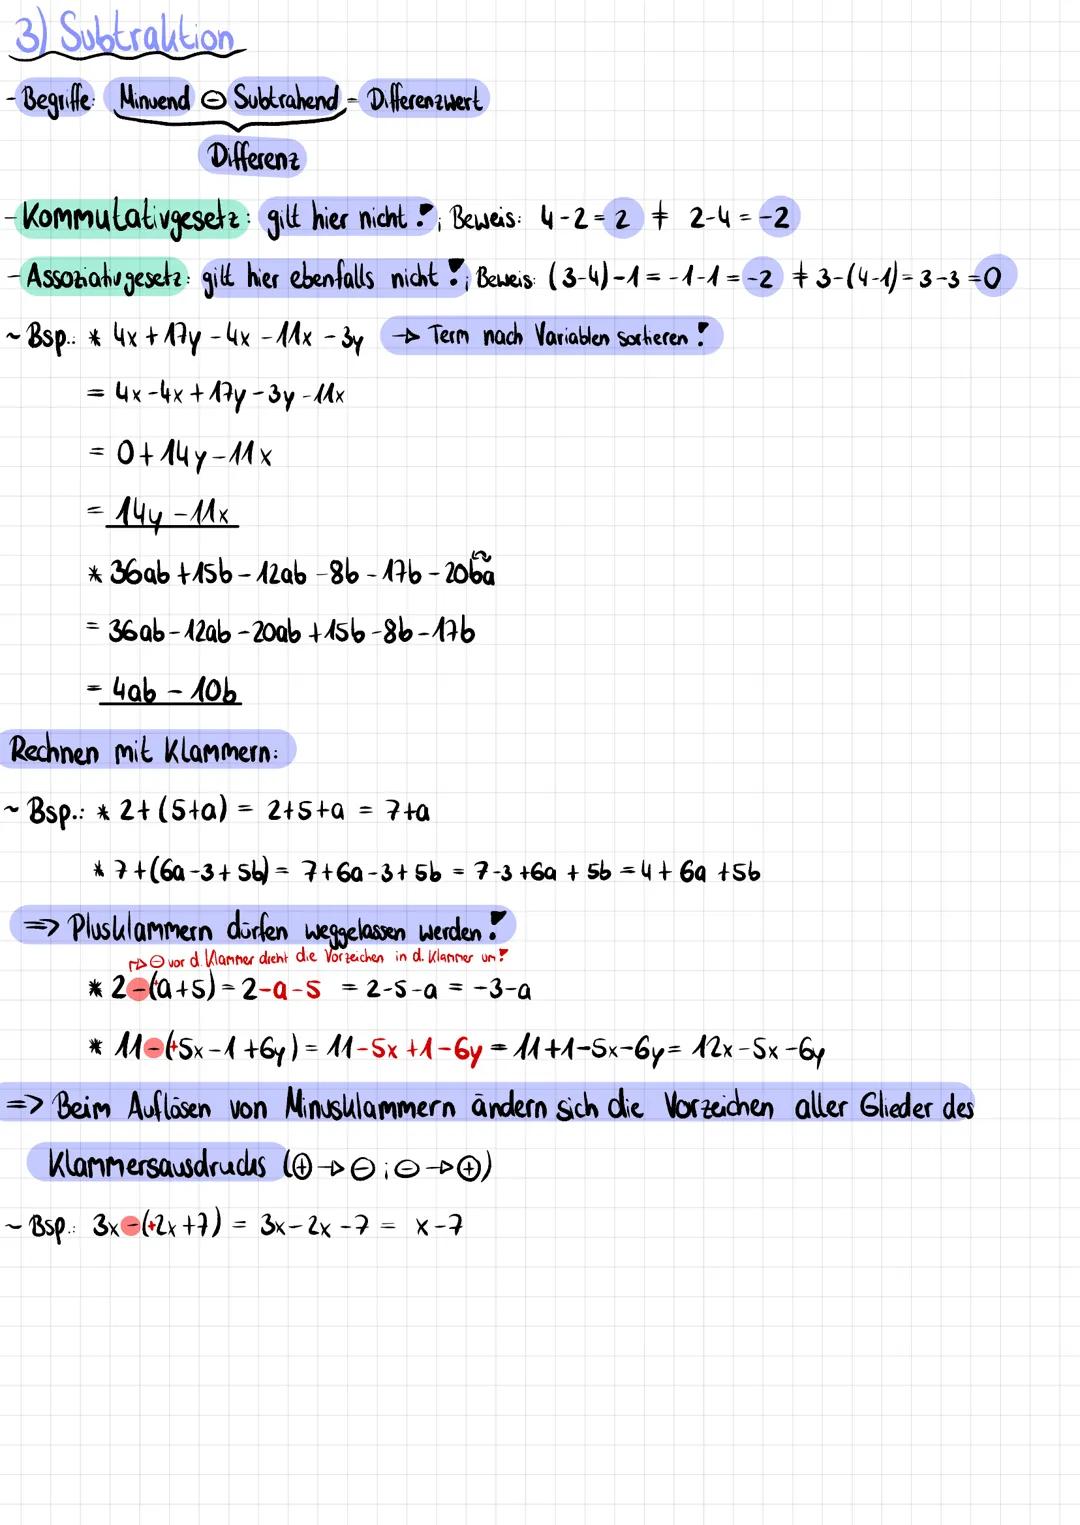 3) Subtraktion
- Begriffe: Minuend ⊖ Subtrahend = Differenzwert
Differenz
- Kommutativgesetz: gilt hier nicht!; Beweis: 4-2=2 ≠ 2-4=-2
- Assoziativgesetz: gilt hier ebenfalls nicht!; Beweis: (3-4)-1=-1-1=-2 ≠ 3-(4-1)=3-3=0
~ Bsp.: * 4x+17y-4x-11x-3y → Term nach Variablen sortieren!
= 4x-4x+17y-3y-11x
= 0+14y-11x
= 14y-11x
* 36ab+15b-12ab-8b-17b-20ba
= 36ab-12ab-20ab+15b-8b-17b
= 4ab-10b
Rechnen mit Klammern:
~ Bsp.: * 2+(5+a) = 2+5+a = 7+a
* 7+(6a-3+5b) = 7+6a-3+5b = 7-3+6a+5b = 4+6a+5b
=> Plusklammern dürfen weggelassen werden!
→ ⊖ vor d. Klammer dreht die Vorzeichen in d. Klammer um!
* 2-(+a+5) = 2-a-5 = 2-5-a = -3-a
* 11-(+5x-1+6y) = 11-5x+1-6y = 11+1-5x-6y = 12x-5x-6y
=> Beim Auflösen von Minusklammern ändern sich die Vorzeichen aller Glieder des
Klammersausdrucks (⊕→⊖;⊖→⊕)
~ Bsp.: 3x-(+2x+7) = 3x-2x-7 = x-7